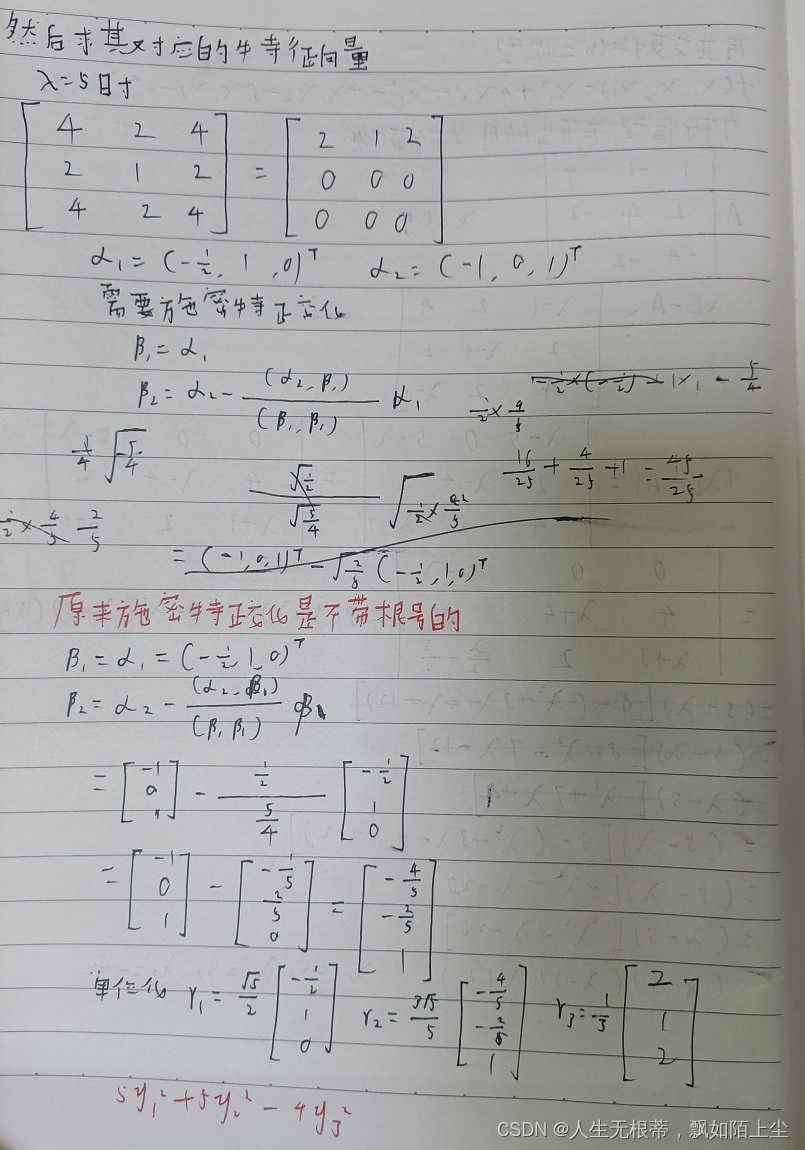 然后求其对应的特征向量
λ=5时
[4 2 4] [2 1 2]
[2 1 2] = [0 0 0]
[4 2 4] [0 0 0]
α₁=(-1/2, 1, 0)ᵀ α₂=(-1, 0, 1)ᵀ
需要施密特正交化
β₁=α₁
β₂=α₂-(α₂,β₁)/(β₁,β₁) α₁
16/25 + 4/25 + 1 = 45/25
= (-1,0,1)ᵀ - √(2/5) (-1/2,1,0)ᵀ
原来施密特正交化是不带根号的
β₁=α₁=(-1/2, 1, 0)ᵀ
β₂=α₂-(α₂,β₁)/(β₁,β₁) β₁
= [-1 0 1] - (1/2)/(5/4) [-1/2 1 0]
= [-1 0 1] - [-1/5 2/5 0] = [-4/5 -2/5 1]
单位化 r₁=√5/2 [-1/2 1 0] r₂=3√5/5 [-4/5 -2/5 1] r₃=1/3 [2 1 2]
5y₁²+5y₂²-4y₃²
CSDN @人生无根蒂，飘如陌上尘